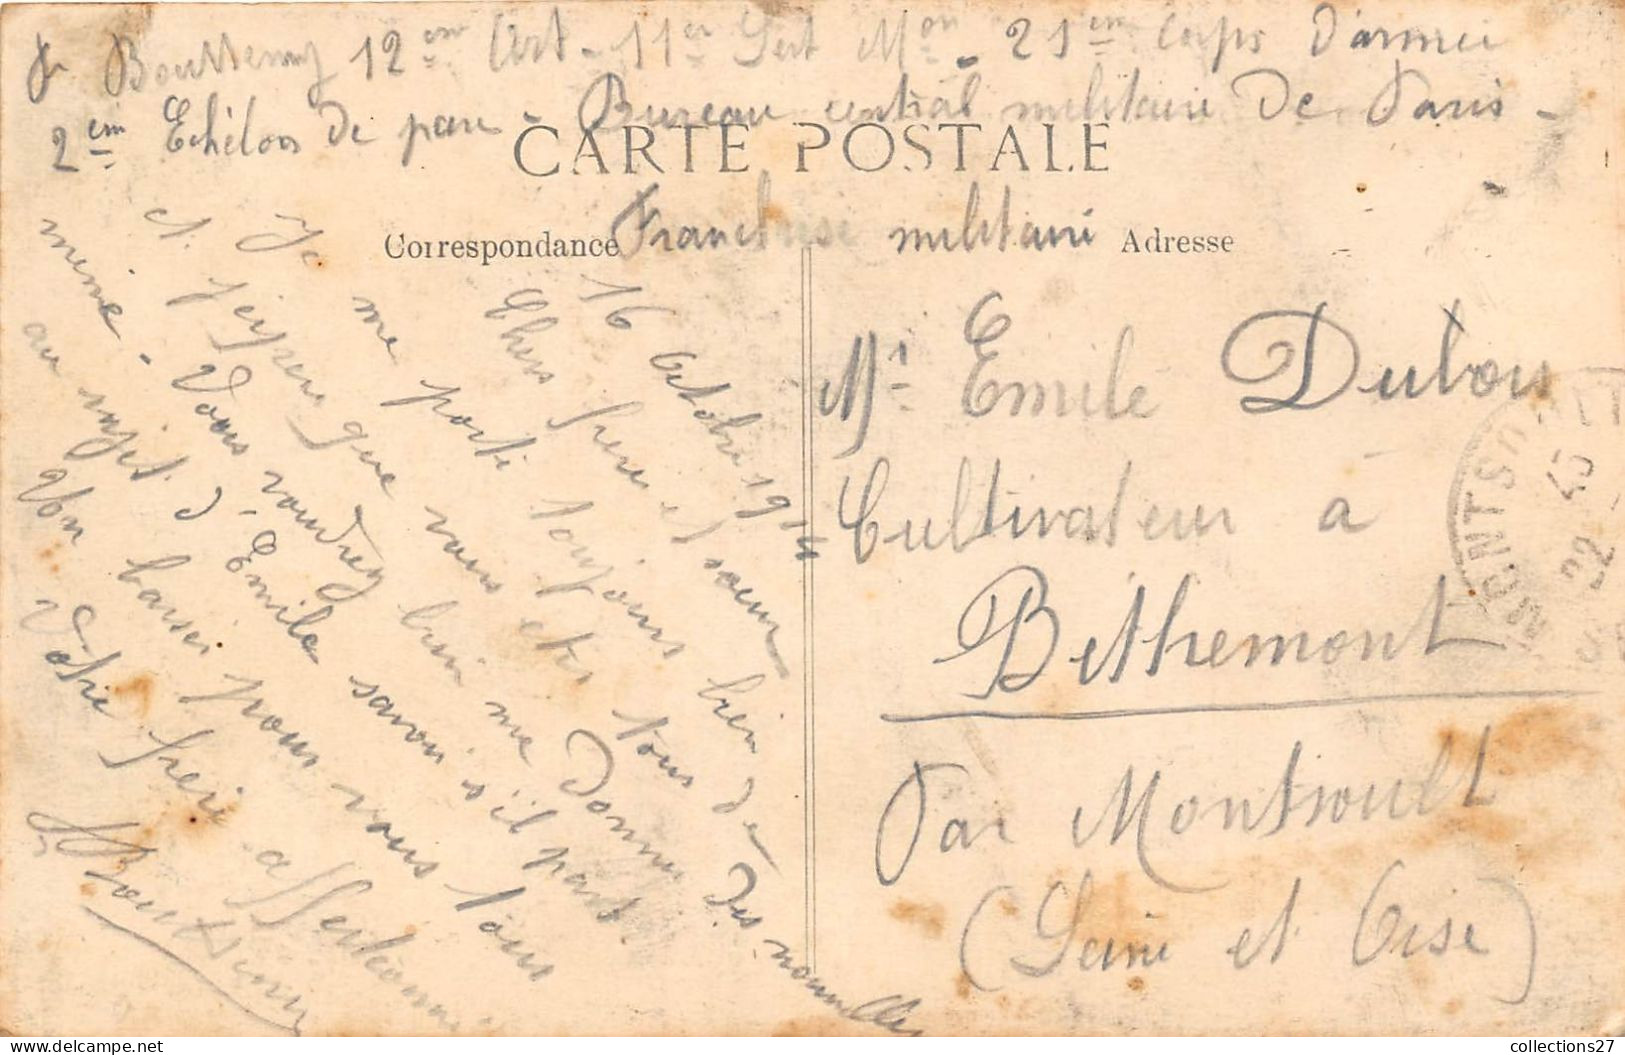 12em Art - 11em Sect Mon - 21em Corps D'armée
2em Echelon De parc - Bureau central militaire De Paris -
CARTE POSTALE
Franchise militaire
Correspondance
Adresse
16 Octobre 1914
Chers frere et soeur
Je me porte toujours bien
et j'espere que vous etes tous de
meme - Vous voudrez bien me donner Des nouvelles
au sujet d'Emile savoir s'il part
Un baiser pour vous tous
Votre frere affectionné
Mr Emile Dubois
Cultivateur à
Bethemont
Par Montsoult
(Seine et Oise)
MONTSOULT
22
collections27